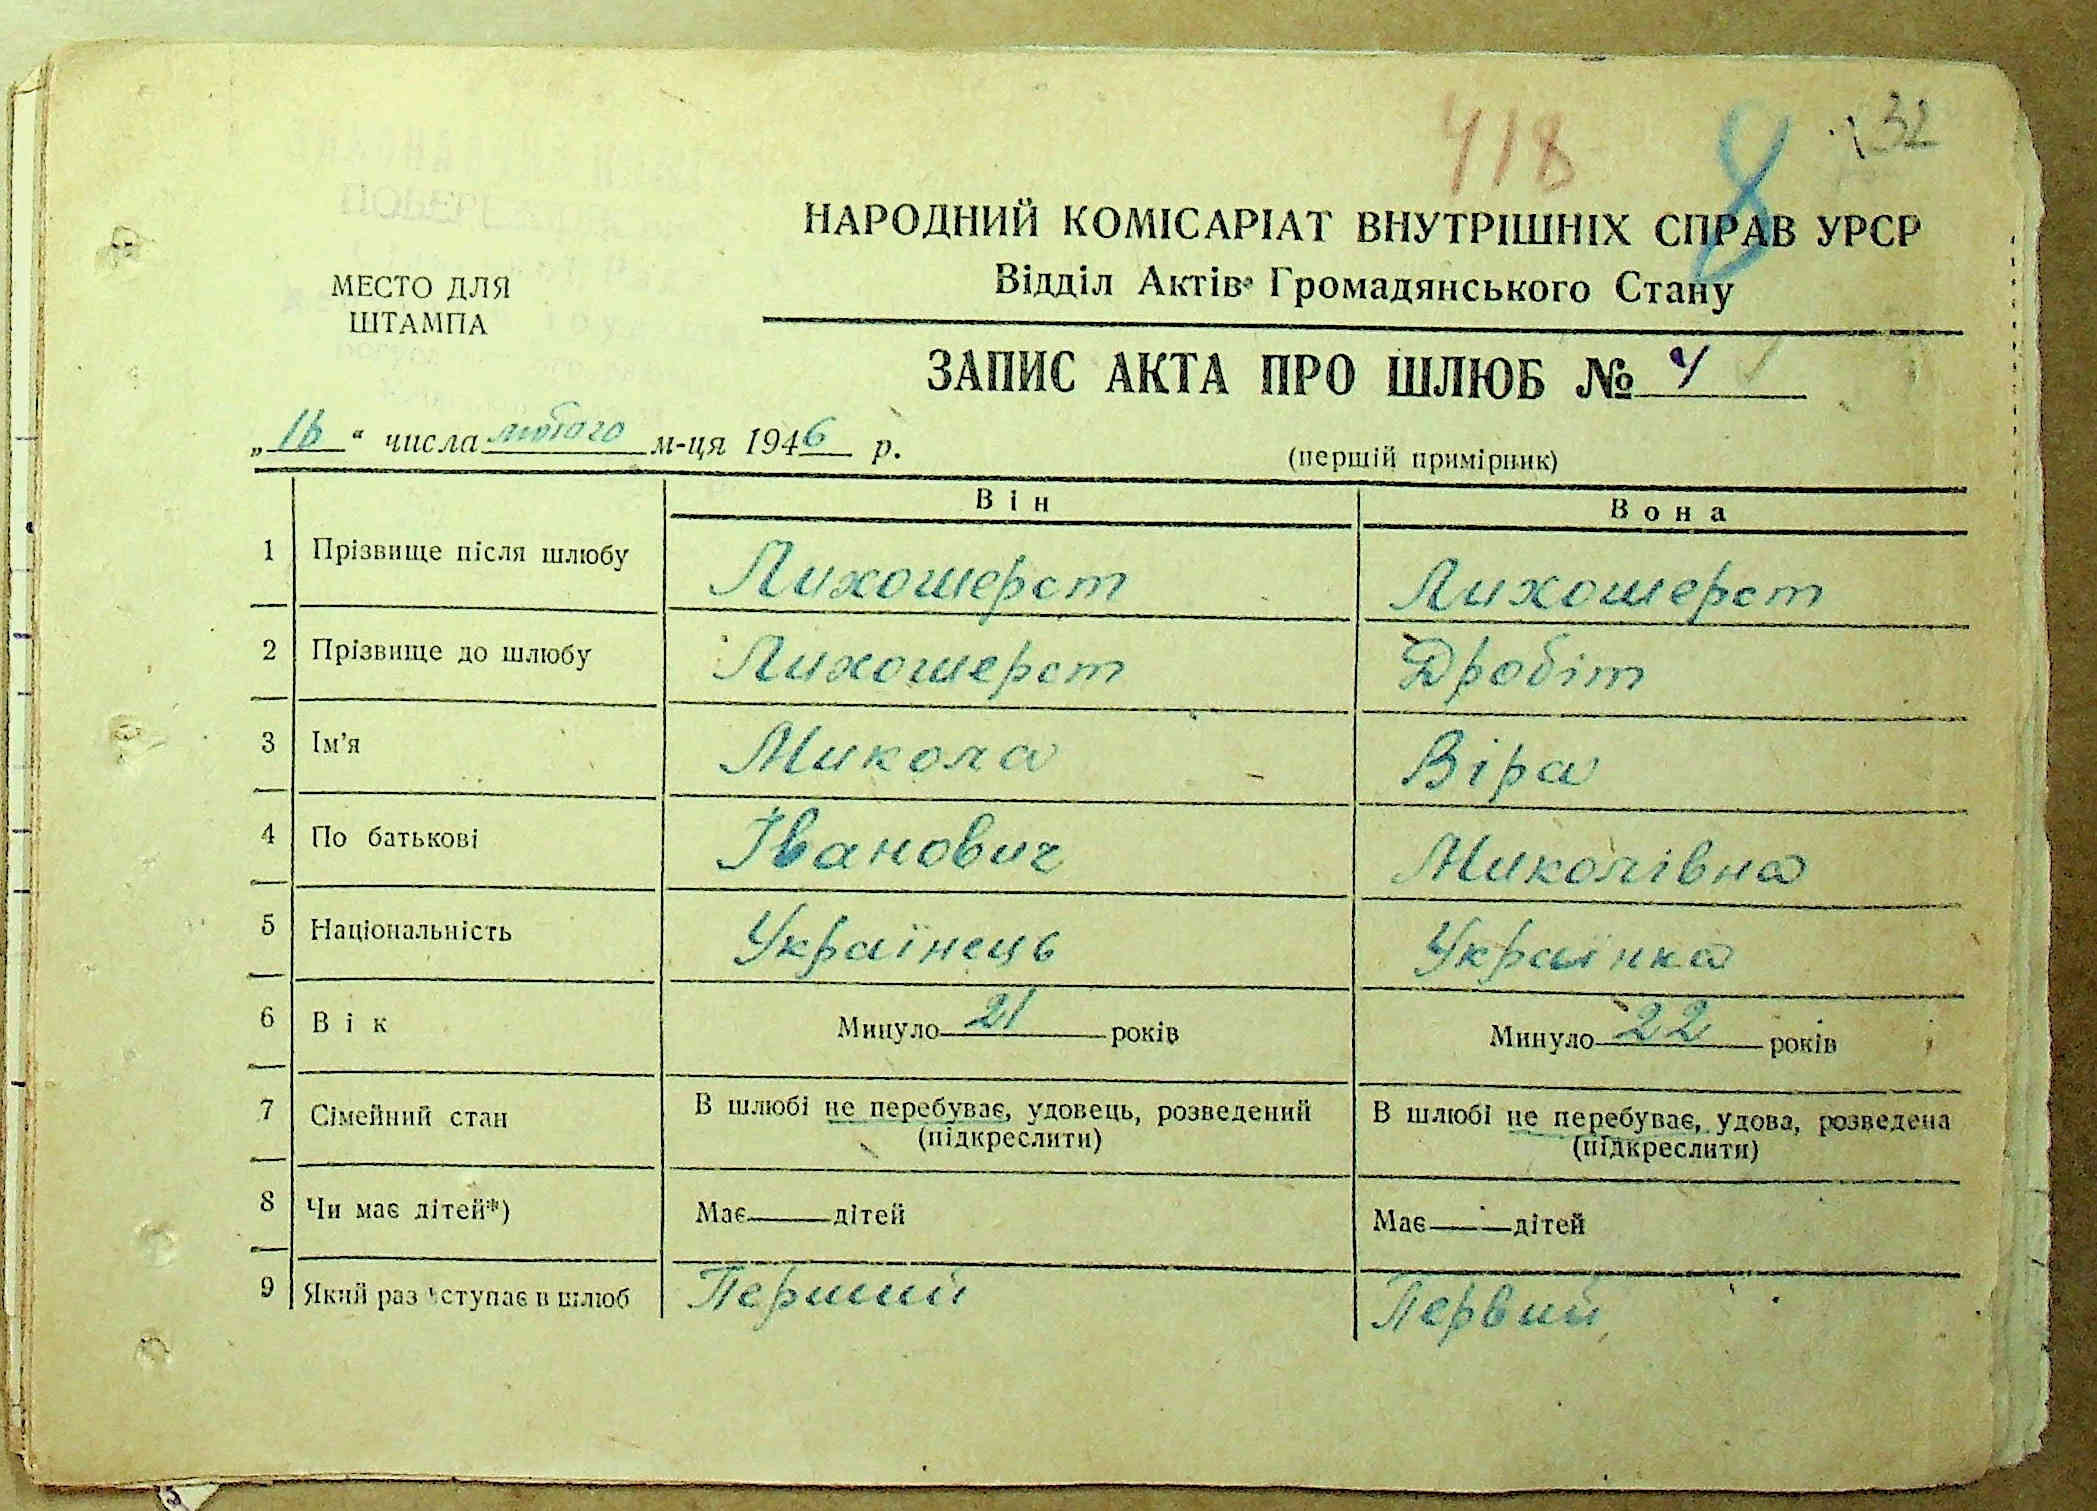 418 8 132
НАРОДНИЙ КОМІСАРІАТ ВНУТРІШНІХ СПРАВ УРСР
Відділ Актів Громадянського Стану
МЕСТО ДЛЯ
ШТАМПА
ЗАПИС АКТА ПРО ШЛЮБ № 4
„16“ числа лютого м-ця 1946 р.
(першій примірник)
Він Вона
1 Прізвище після шлюбу Лихошерст Лихошерст
2 Прізвище до шлюбу Лихошерст Дробіт
3 Ім’я Микола Віра
4 По батькові Іванович Миколівна
5 Національність Українець Українка
6 Вік Минуло 21 років Минуло 22 років
7 Сімейний стан В шлюбі не перебуває, удовець, розведений В шлюбі не перебуває, удова, розведена
(підкреслити) (підкреслити)
8 Чи має дітей*) Має — дітей Має — дітей
9 Який раз вступає в шлюб Перший Первий